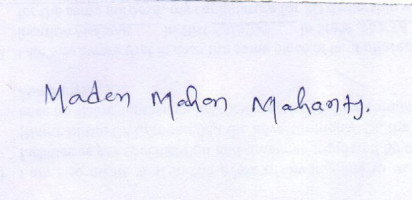 Maden Mahon Mahanty.